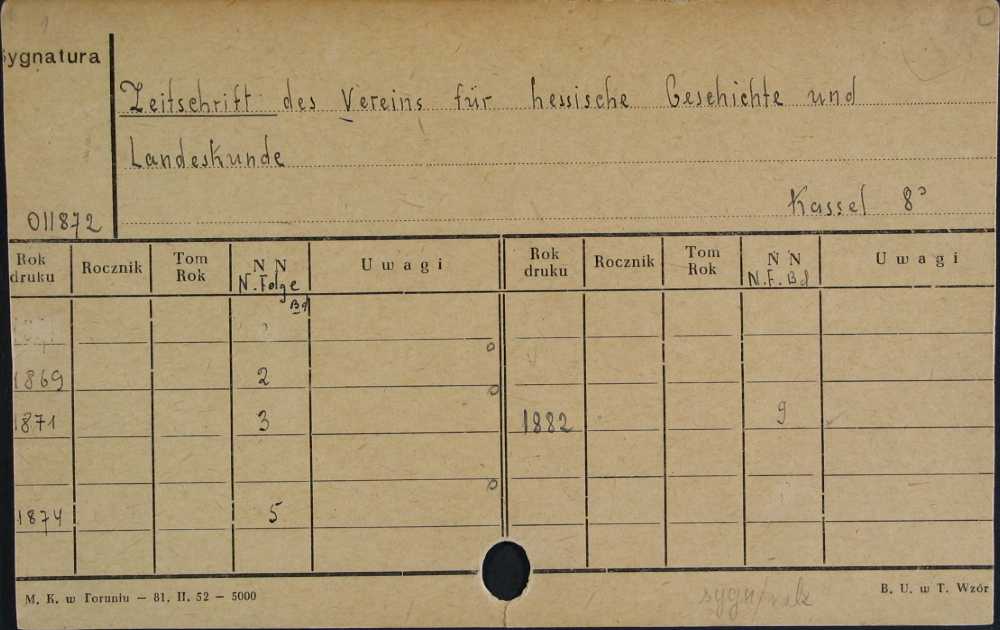 Sygnatura
Zeitschrift des Vereins für hessische Geschichte und
Landeskunde
Kassel 8°
011872
Rok druku Rocznik Tom Rok N N N. Folge Bd Uwagi Rok druku Rocznik Tom Rok N N N.F. Bd Uwagi
1869 2
1871 3 1882 9
1874 5
M. K. w Toruniu — 81. II. 52 — 5000
B. U. w T. Wzór